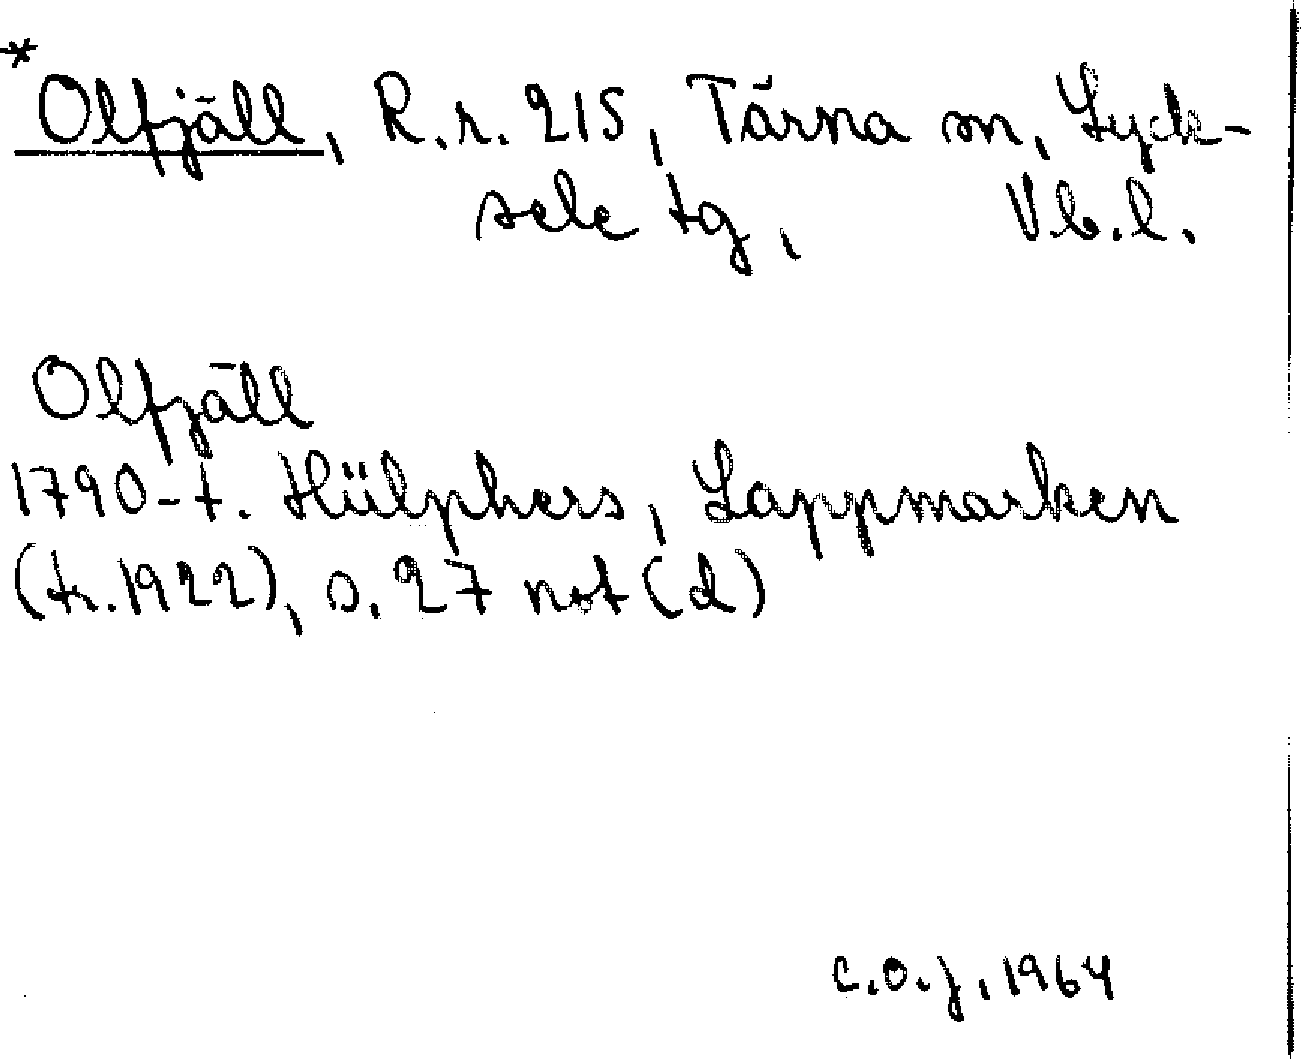 *
Olfjäll, R.r. 215, Tärna sn, Lyck-
sele tg, Vb.l.
Olfjäll
1790-t. Hülphers, Lappmarken
(tr. 1922), s. 27 not (d)
C.O.J, 1964